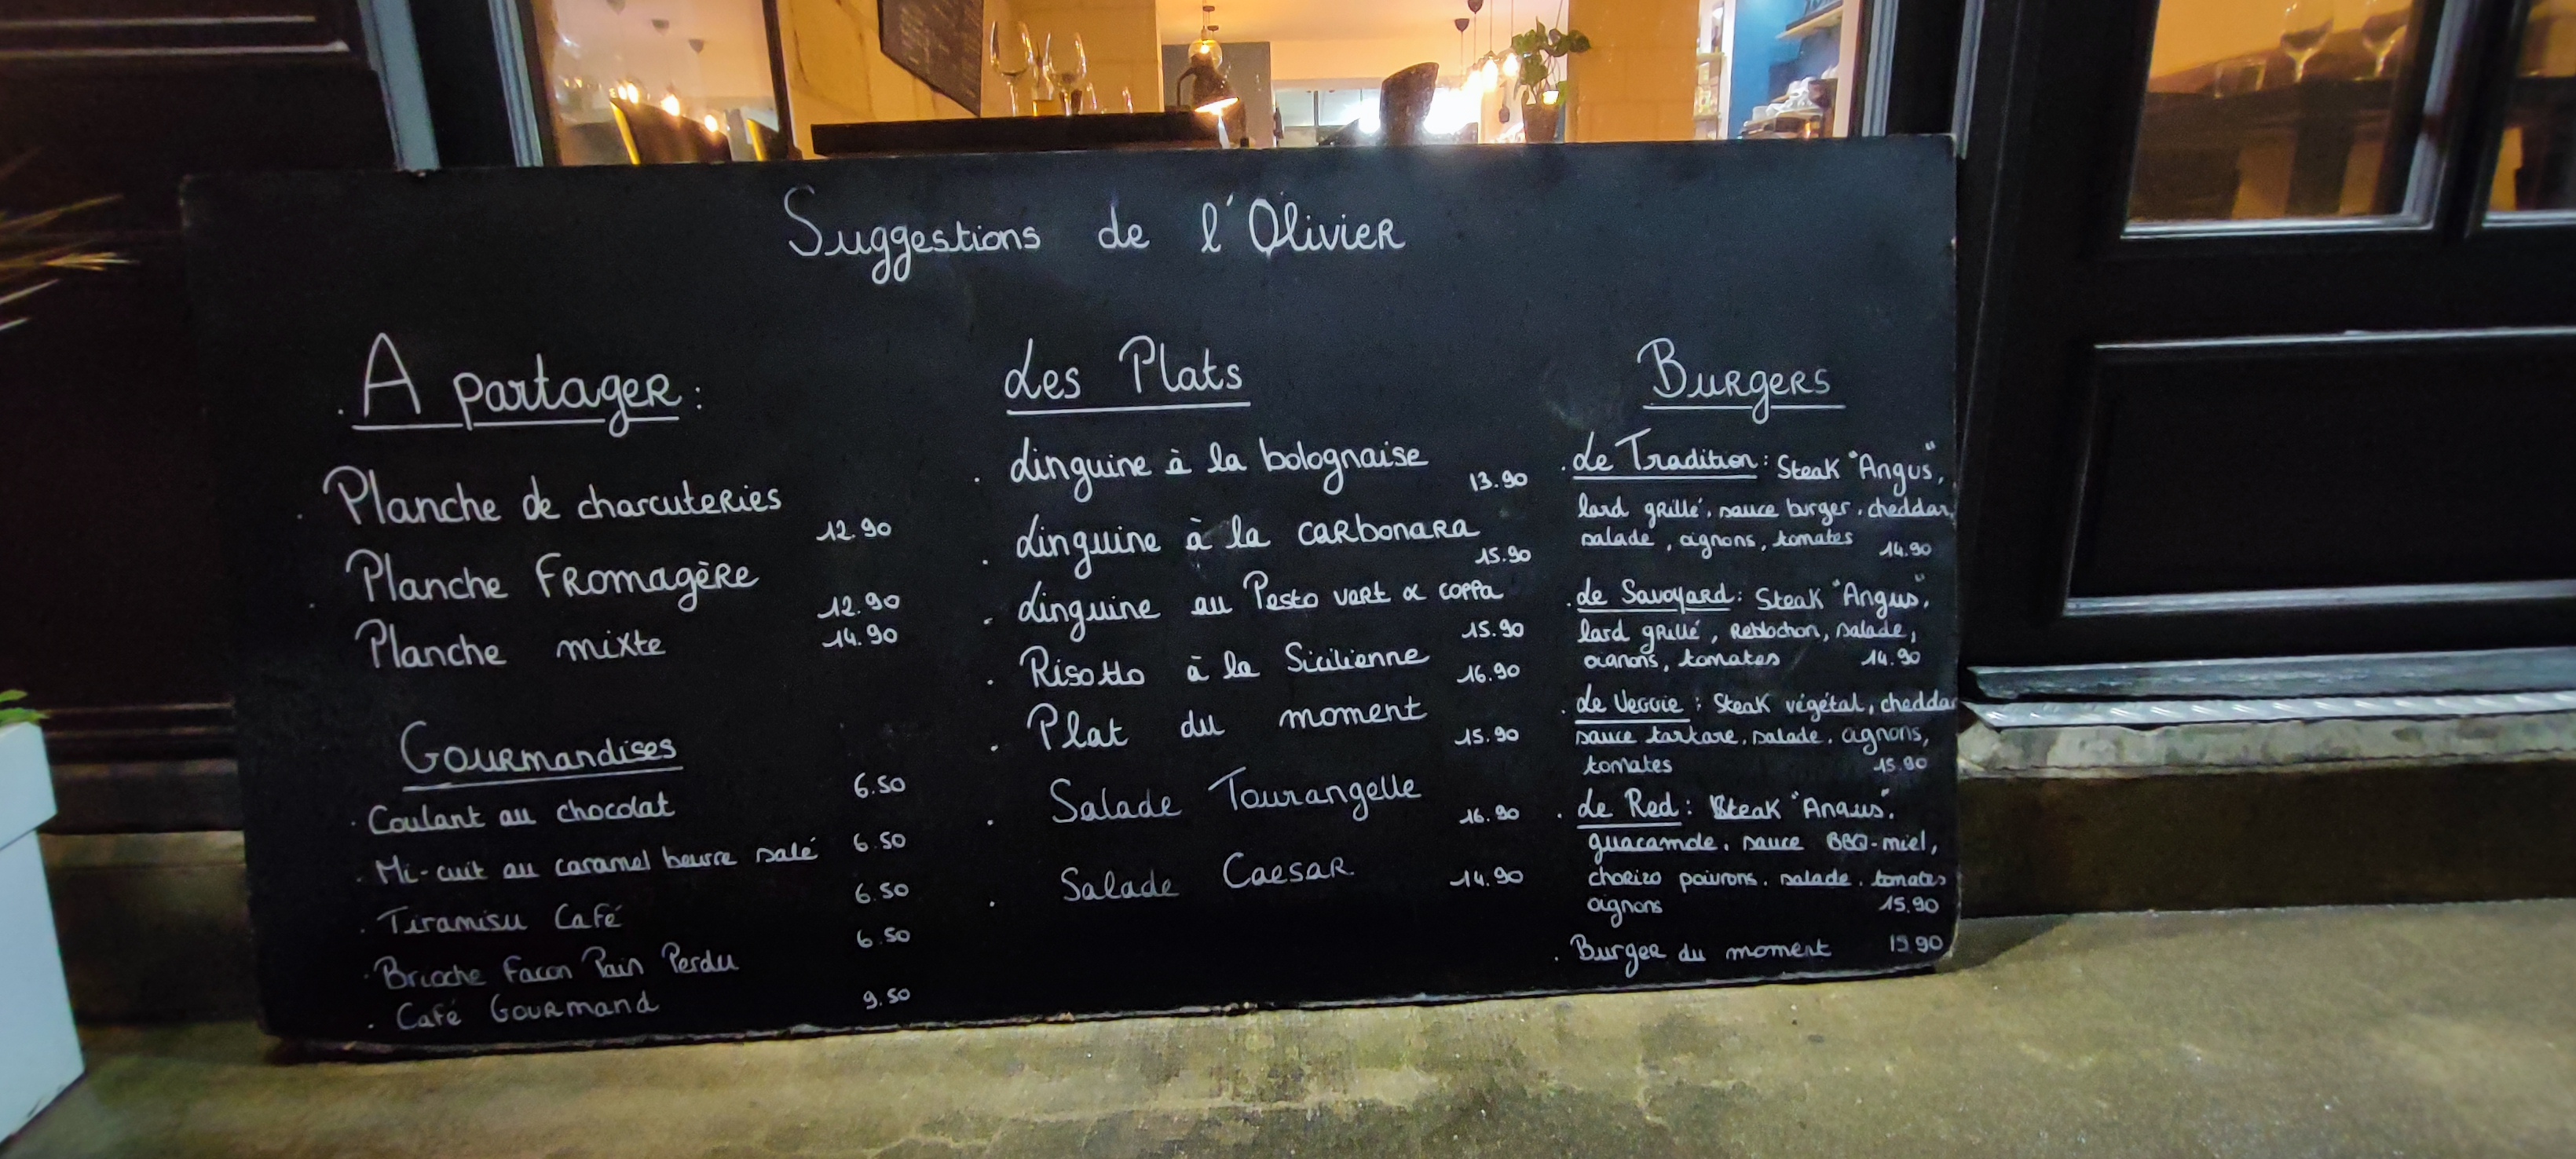 Suggestions de l'Olivier
. A partager :
. Planche de charcuteries 12.90
. Planche Fromagère 12.90
Planche mixte 14.90
Gourmandises
. Coulant au chocolat 6.50
. Mi-cuit au caramel beurre salé 6.50
. Tiramisu Café 6.50
. Brioche Facon Pain Perdu 6.50
. Café Gourmand 9.50
Les Plats
. Linguine à la bolognaise 13.90
. Linguine à la carbonara 15.90
. Linguine au Pesto vert & coppa 15.90
. Risotto à la Sicilienne 16.90
. Plat du moment 15.90
. Salade Tourangelle 16.90
. Salade Caesar 14.90
Burgers
. Le Tradition : Steak "Angus",
lard grillé, sauce burger, cheddar,
salade, oignons, tomates 14.90
. Le Savoyard : Steak "Angus",
lard grillé, Reblochon, salade,
oignons, tomates 14.90
. Le Veggie : Steak végétal, cheddar
sauce tartare, salade, oignons,
tomates 15.90
. Le Red : Steak "Angus",
guacamole, sauce BBQ-miel,
chorizo poivrons, salade, tomates
oignons 15.90
. Burger du moment 15.90